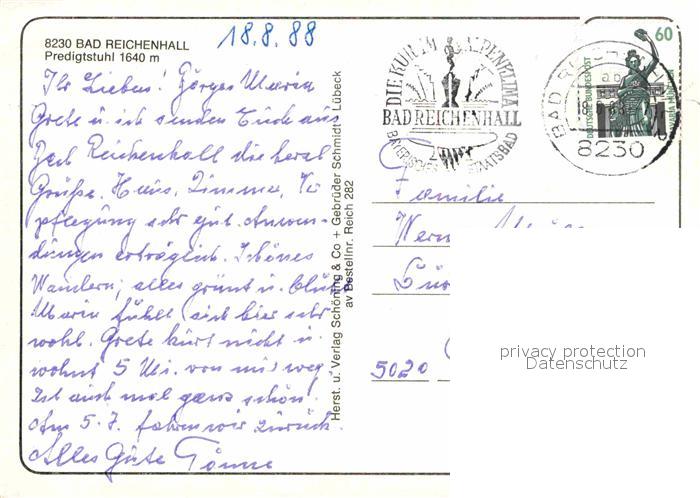 18.8.88
8230 BAD REICHENHALL
Predigtstuhl 1640 m
Ihr Lieben! Maria
Grete u. ich senden Euch aus
Bad Reichenhall die herzl.
Grüße. Haus, Zimmer, Ver
pflegung sehr gut. Anwen-
dungen erträglich. Schönes
Wandern, alles grünt u. blüht
Maria fühlt sich hier sehr
wohl. Grete kurt nicht u.
wohnt 5 Min. von mir weg
Ist auch mal ganz schön!
Am 5.7. fahren wir zurück.
Alles Gute
Herst. u. Verlag Schöning & Co + Gebrüder Schmidt, Lübeck
av Bestellnr. Reich 282
DIE KUR IM ALPENKLIMA
BAD REICHENHALL
BAYERISCHES STAATSBAD
BAD REICHENHALL
8230
60
DEUTSCHE BUNDESPOST
Familie
5020
privacy protection
Datenschutz